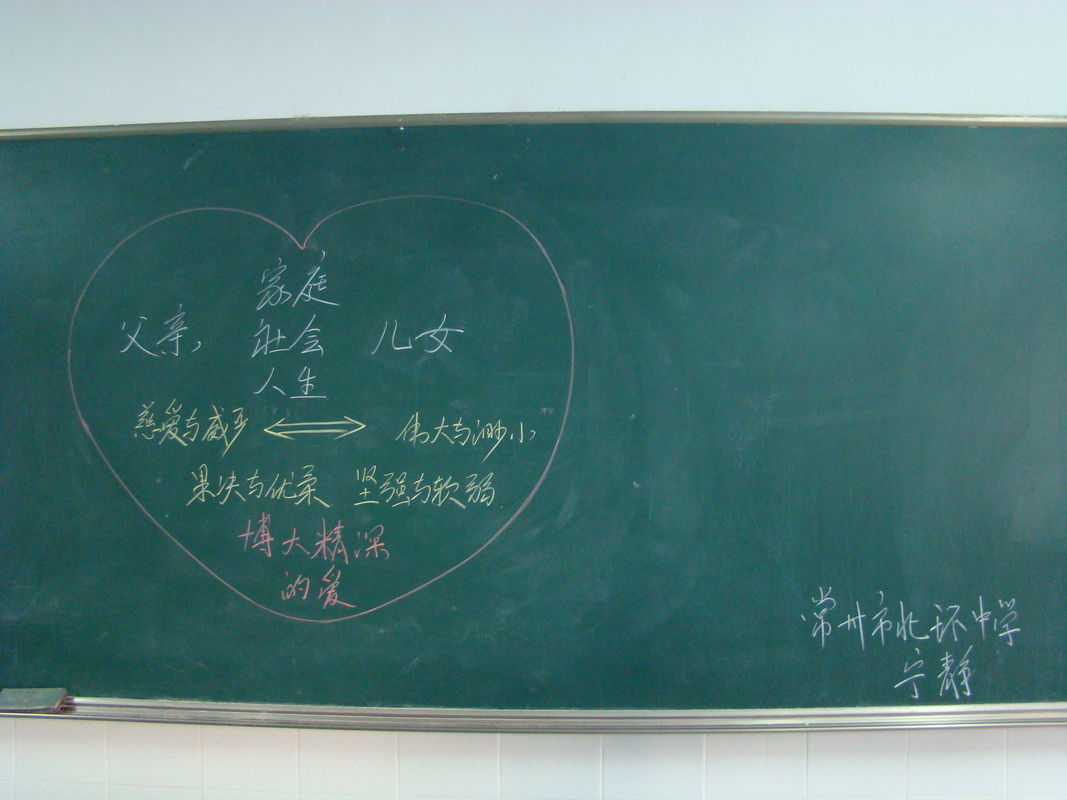 家庭
父亲, 社会 儿女
人生
慈爱与威严 伟大与渺小
果决与优柔 坚强与软弱
博大精深
的爱
常州市北环中学
宁静